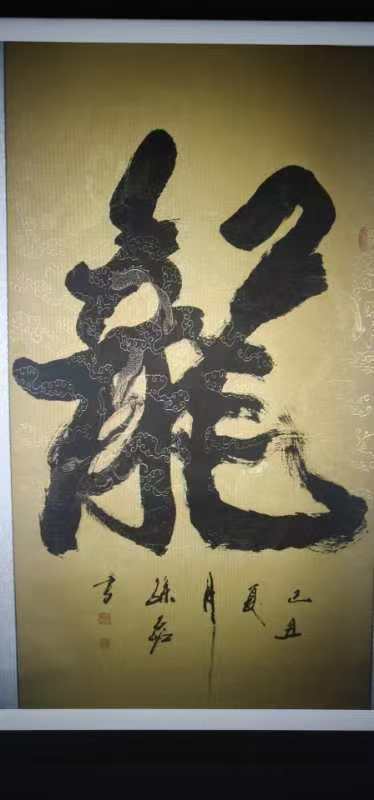 龍
己丑
夏
月
書